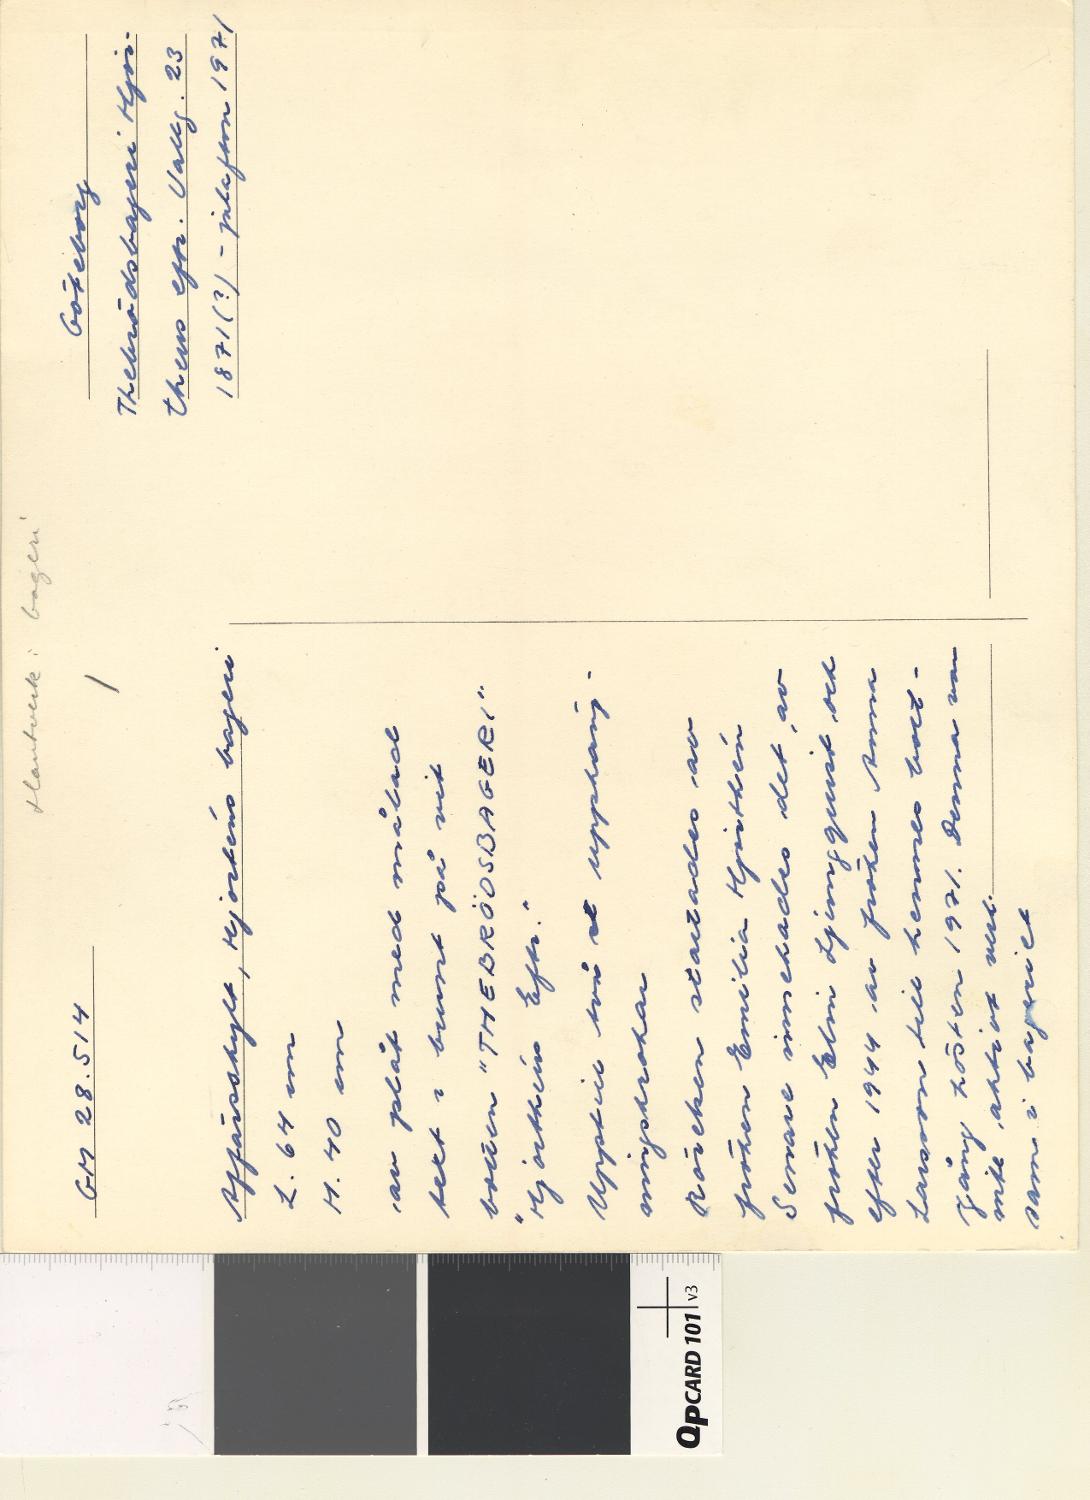 Hantverk: bageri
GM 28.514
Göteborg
Thebrödsbageri Hjor-
théns eftr. Vallg. 23
1871(?) - julafton 1971
Affärsskylt, Hjorténs bageri
L. 64 cm
H. 40 cm
av plåt med målad
text i brunt på vit
botten "THEBRÖDSBAGERI"
"Hjorthéns Eftr."
Upptill två st upphäng-
ningskrokar
Rörelsen startades av
fröken Emilia Hjorthén
Senare innehades det av
fröken Elin Ljungquist och
efter 1944 av fröken Anna
Larsson till hennes bort-
gång hösten 1971. Denna var
inte aktivt verk-
sam i bageriet
QPCARD 101 v3